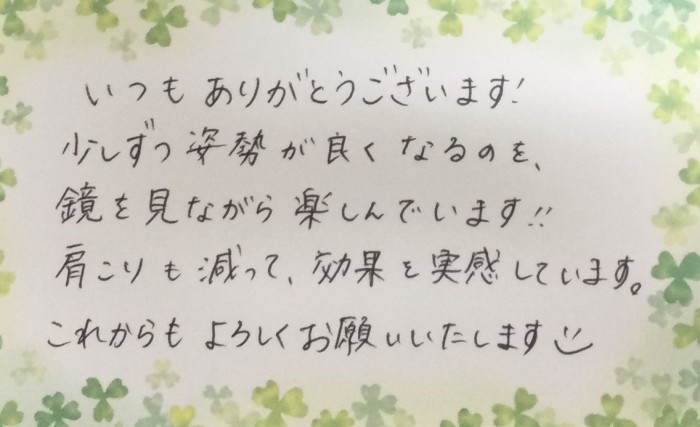 いつもありがとうございます!
少しずつ姿勢が良くなるのを、
鏡を見ながら楽しんでいます!!
肩こりも減って、効果を実感しています。
これからもよろしくお願いいたします